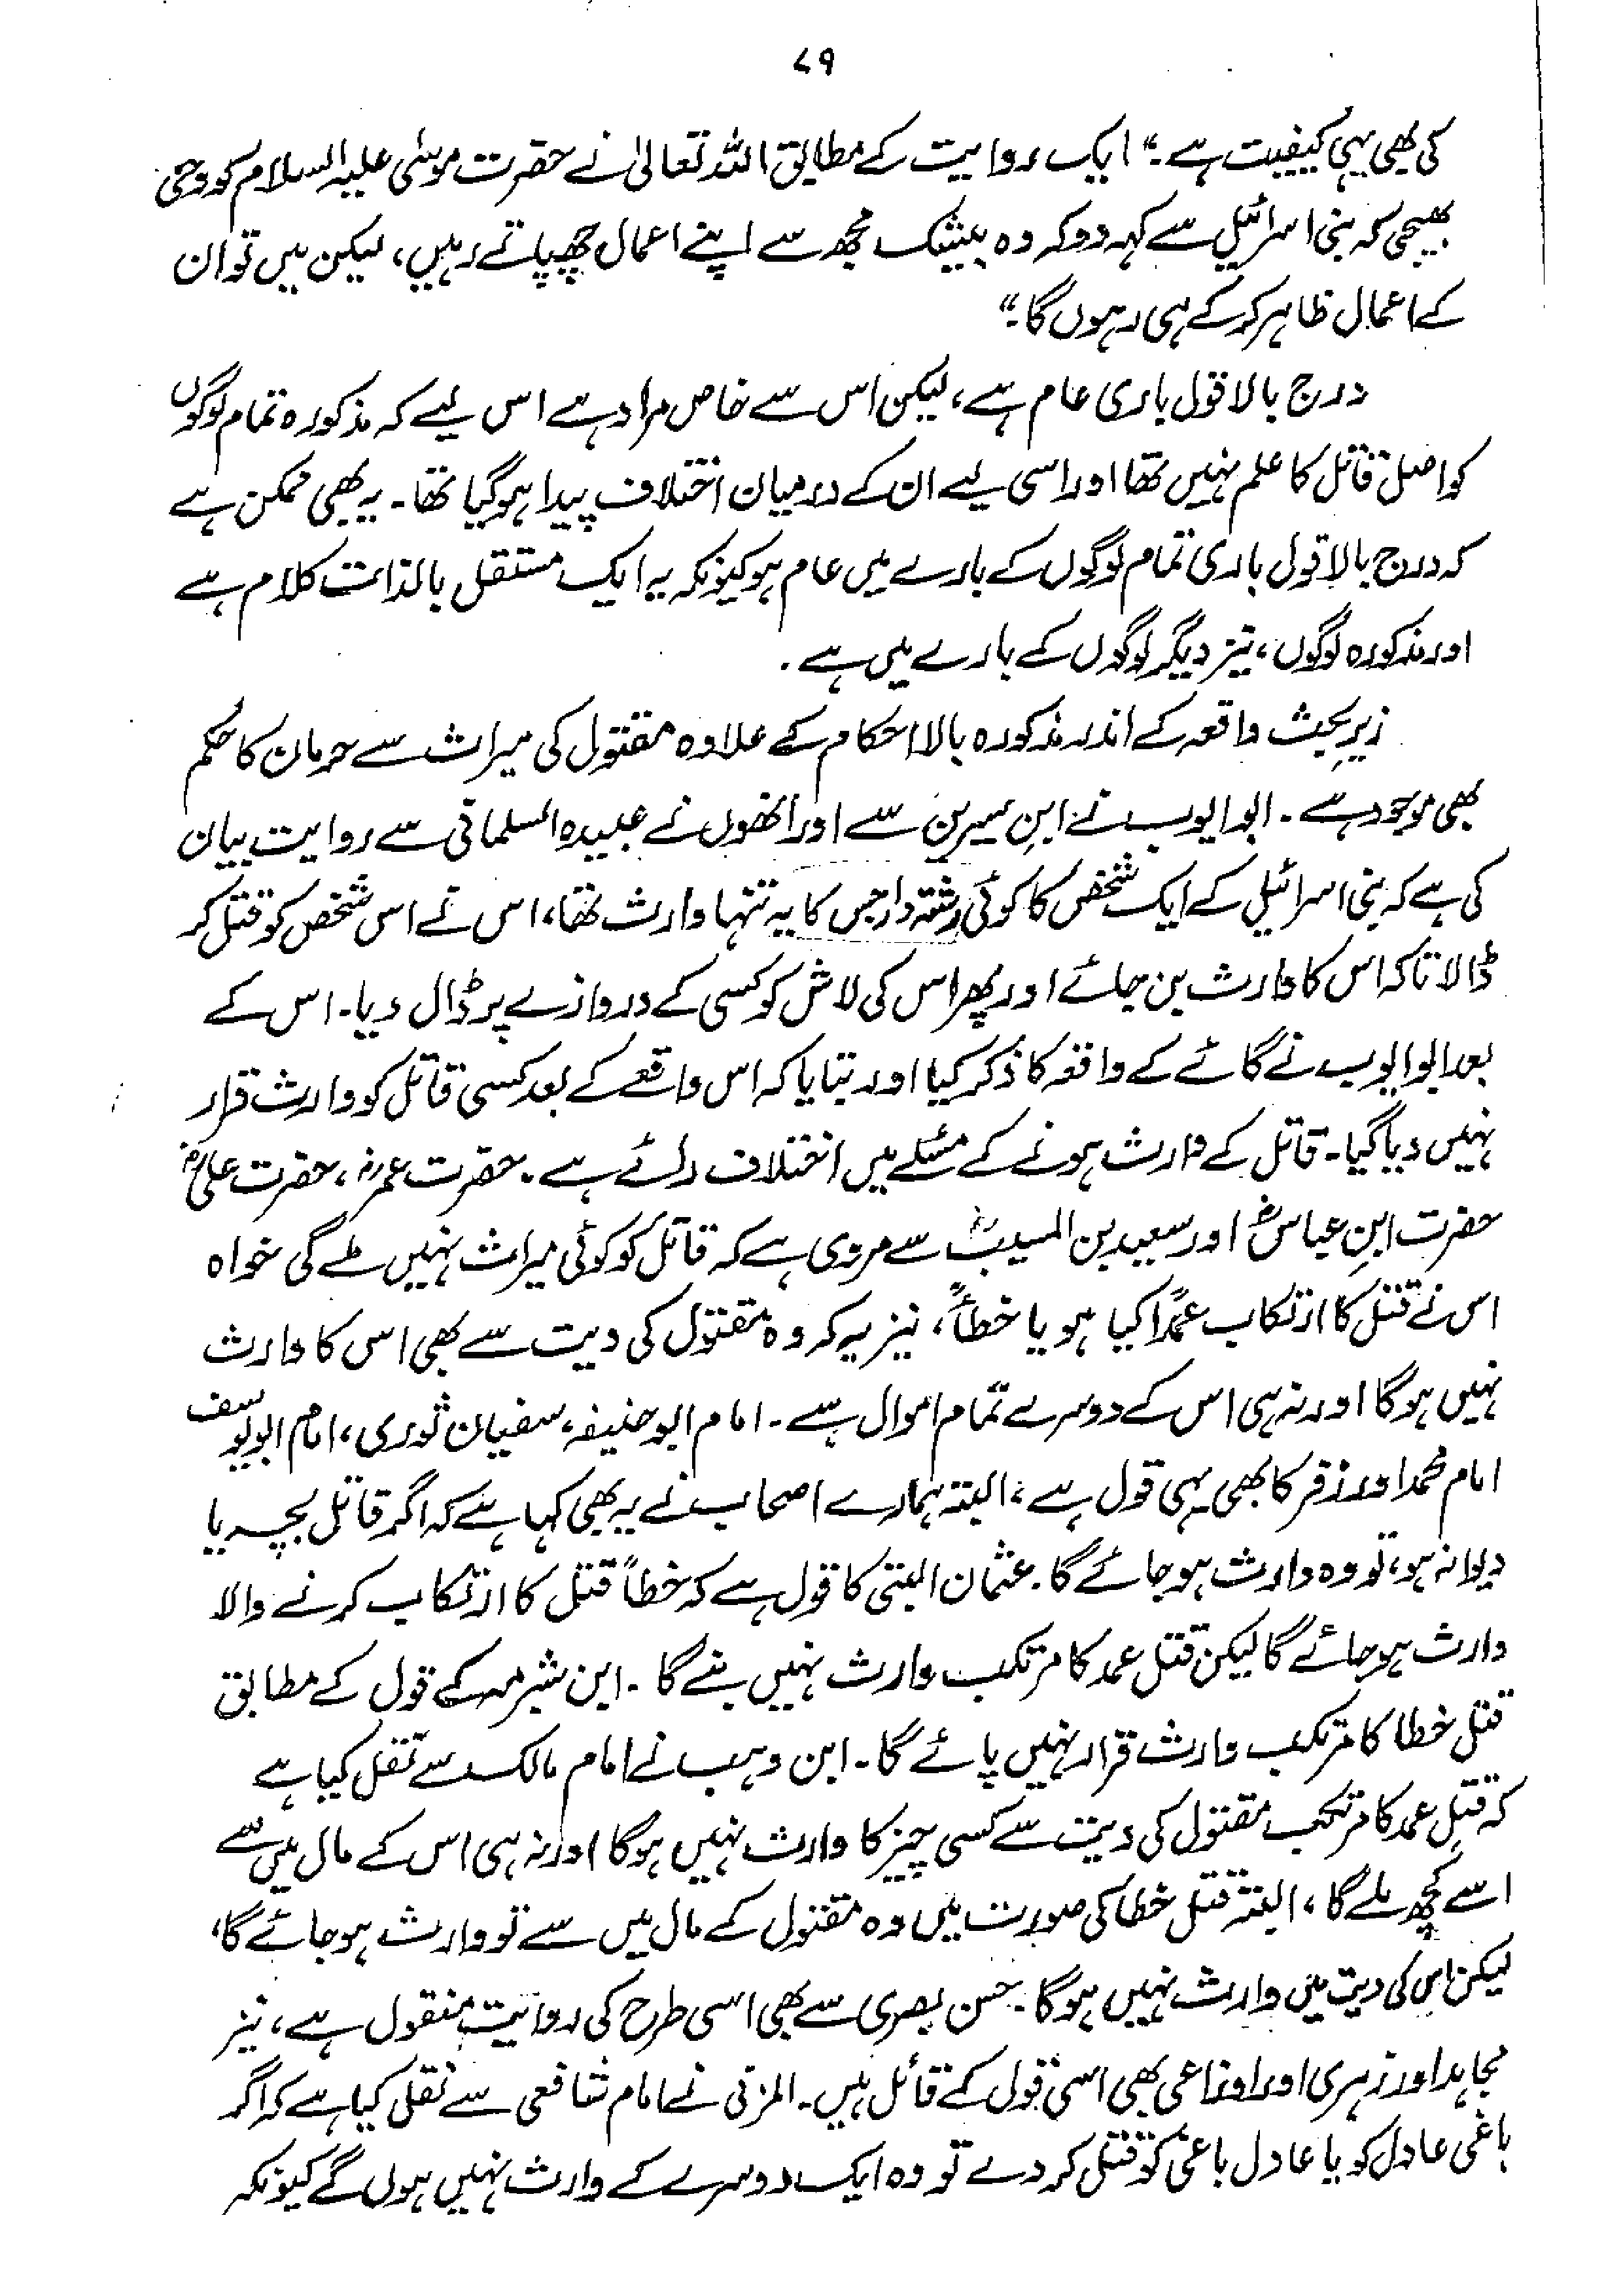 ۷۹
کی بھی یہی کیفیت ہے۔“ ایک روایت کے مطابق اللہ تعالیٰ نے حضرت موسیٰ علیہ السلام کو وحی
بھیجی کہ بنی اسرائیل سے کہہ دو کہ وہ بیشک مجھ سے اپنے اعمال چھپاتے رہیں، لیکن میں تو ان
کے اعمال ظاہر کر کے ہی رہوں گا۔“
درج بالا قول باری عام ہے، لیکن اس سے خاص مراد ہے اس لیے کہ مذکورہ تمام لوگوں
کو اصل قاتل کا علم نہیں تھا اور اسی لیے ان کے درمیان اختلاف پیدا ہو گیا تھا۔ یہ بھی ممکن ہے
کہ درج بالا قول باری تمام لوگوں کے بارے میں عام ہو کیونکہ یہ ایک مستقل بالذات کلام ہے
اور مذکورہ لوگوں، نیز دیگر لوگوں کے بارے میں ہے۔
زیرِ بحث واقعہ کے اندر مذکورہ بالا احکام کے علاوہ مقتول کی میراث سے حرمان کا حکم
بھی موجود ہے۔ ابو ایوب نے ابنِ سیرین سے اور انھوں نے عبیدہ السلمانی سے روایت بیان
کی ہے کہ بنی اسرائیل کے ایک شخص کا کوئی رشتہ دار جس کا یہ تنہا وارث تھا، اس نے اس شخص کو قتل کر
ڈالا تاکہ اس کا وارث بن جائے اور پھر اس کی لاش کو کسی کے دروازے پر ڈال دیا۔ اس کے
بعد ابو ایوب نے گائے کے واقعہ کا ذکر کیا اور بتایا کہ اس واقعے کے بعد کسی قاتل کو وارث قرار
نہیں دیا گیا۔ قاتل کے وارث ہونے کے مسئلے میں اختلاف رائے ہے۔ حضرت عمرؓ، حضرت علیؓ
حضرت ابنِ عباسؓ اور سعید بن المسیبؒ سے مروی ہے کہ قاتل کو کوئی میراث نہیں ملے گی خواہ
اس نے قتل کا ارتکاب عمداً کیا ہو یا خطأً، نیز یہ کہ وہ مقتول کی دیت سے بھی اس کا وارث
نہیں ہوگا اور نہ ہی اس کے دوسرے تمام اموال سے۔ امام ابو حنیفہ، سفیان ثوری، امام ابو یوسف
امام محمد اور زفر کا بھی یہی قول ہے، البتہ ہمارے اصحاب نے یہ بھی کہا ہے کہ اگر قاتل بچہ یا
دیوانہ ہو، تو وہ وارث ہو جائے گا۔ عثمان البتی کا قول ہے کہ خطاً قتل کا ارتکاب کرنے والا
وارث ہو جائے گا لیکن قتل عمد کا مرتکب وارث نہیں بنے گا۔ ابن شبرمہ کے قول کے مطابق
قتل خطا کا مرتکب وارث قرار نہیں پائے گا۔ ابن وہب نے امام مالک سے نقل کیا ہے
کہ قتلِ عمد کا مرتکب مقتول کی دیت سے کسی چیز کا وارث نہیں ہوگا اور نہ ہی اس کے مال میں سے
اسے کچھ ملے گا، البتہ قتل خطا کی صورت میں وہ مقتول کے مال میں سے تو وارث ہو جائے گا،
لیکن اس کی دیت میں وارث نہیں ہوگا۔ حسن بصری سے بھی اسی طرح کی روایت منقول ہے، نیز
مجاہد اور زہری اور اوزاعی بھی اسی قول کے قائل ہیں۔ المزنی نے امام شافعی سے نقل کیا ہے کہ اگر
باغی عادل کو یا عادل باغی کو قتل کر دے تو وہ ایک دوسرے کے وارث نہیں ہوں گے کیونکہ